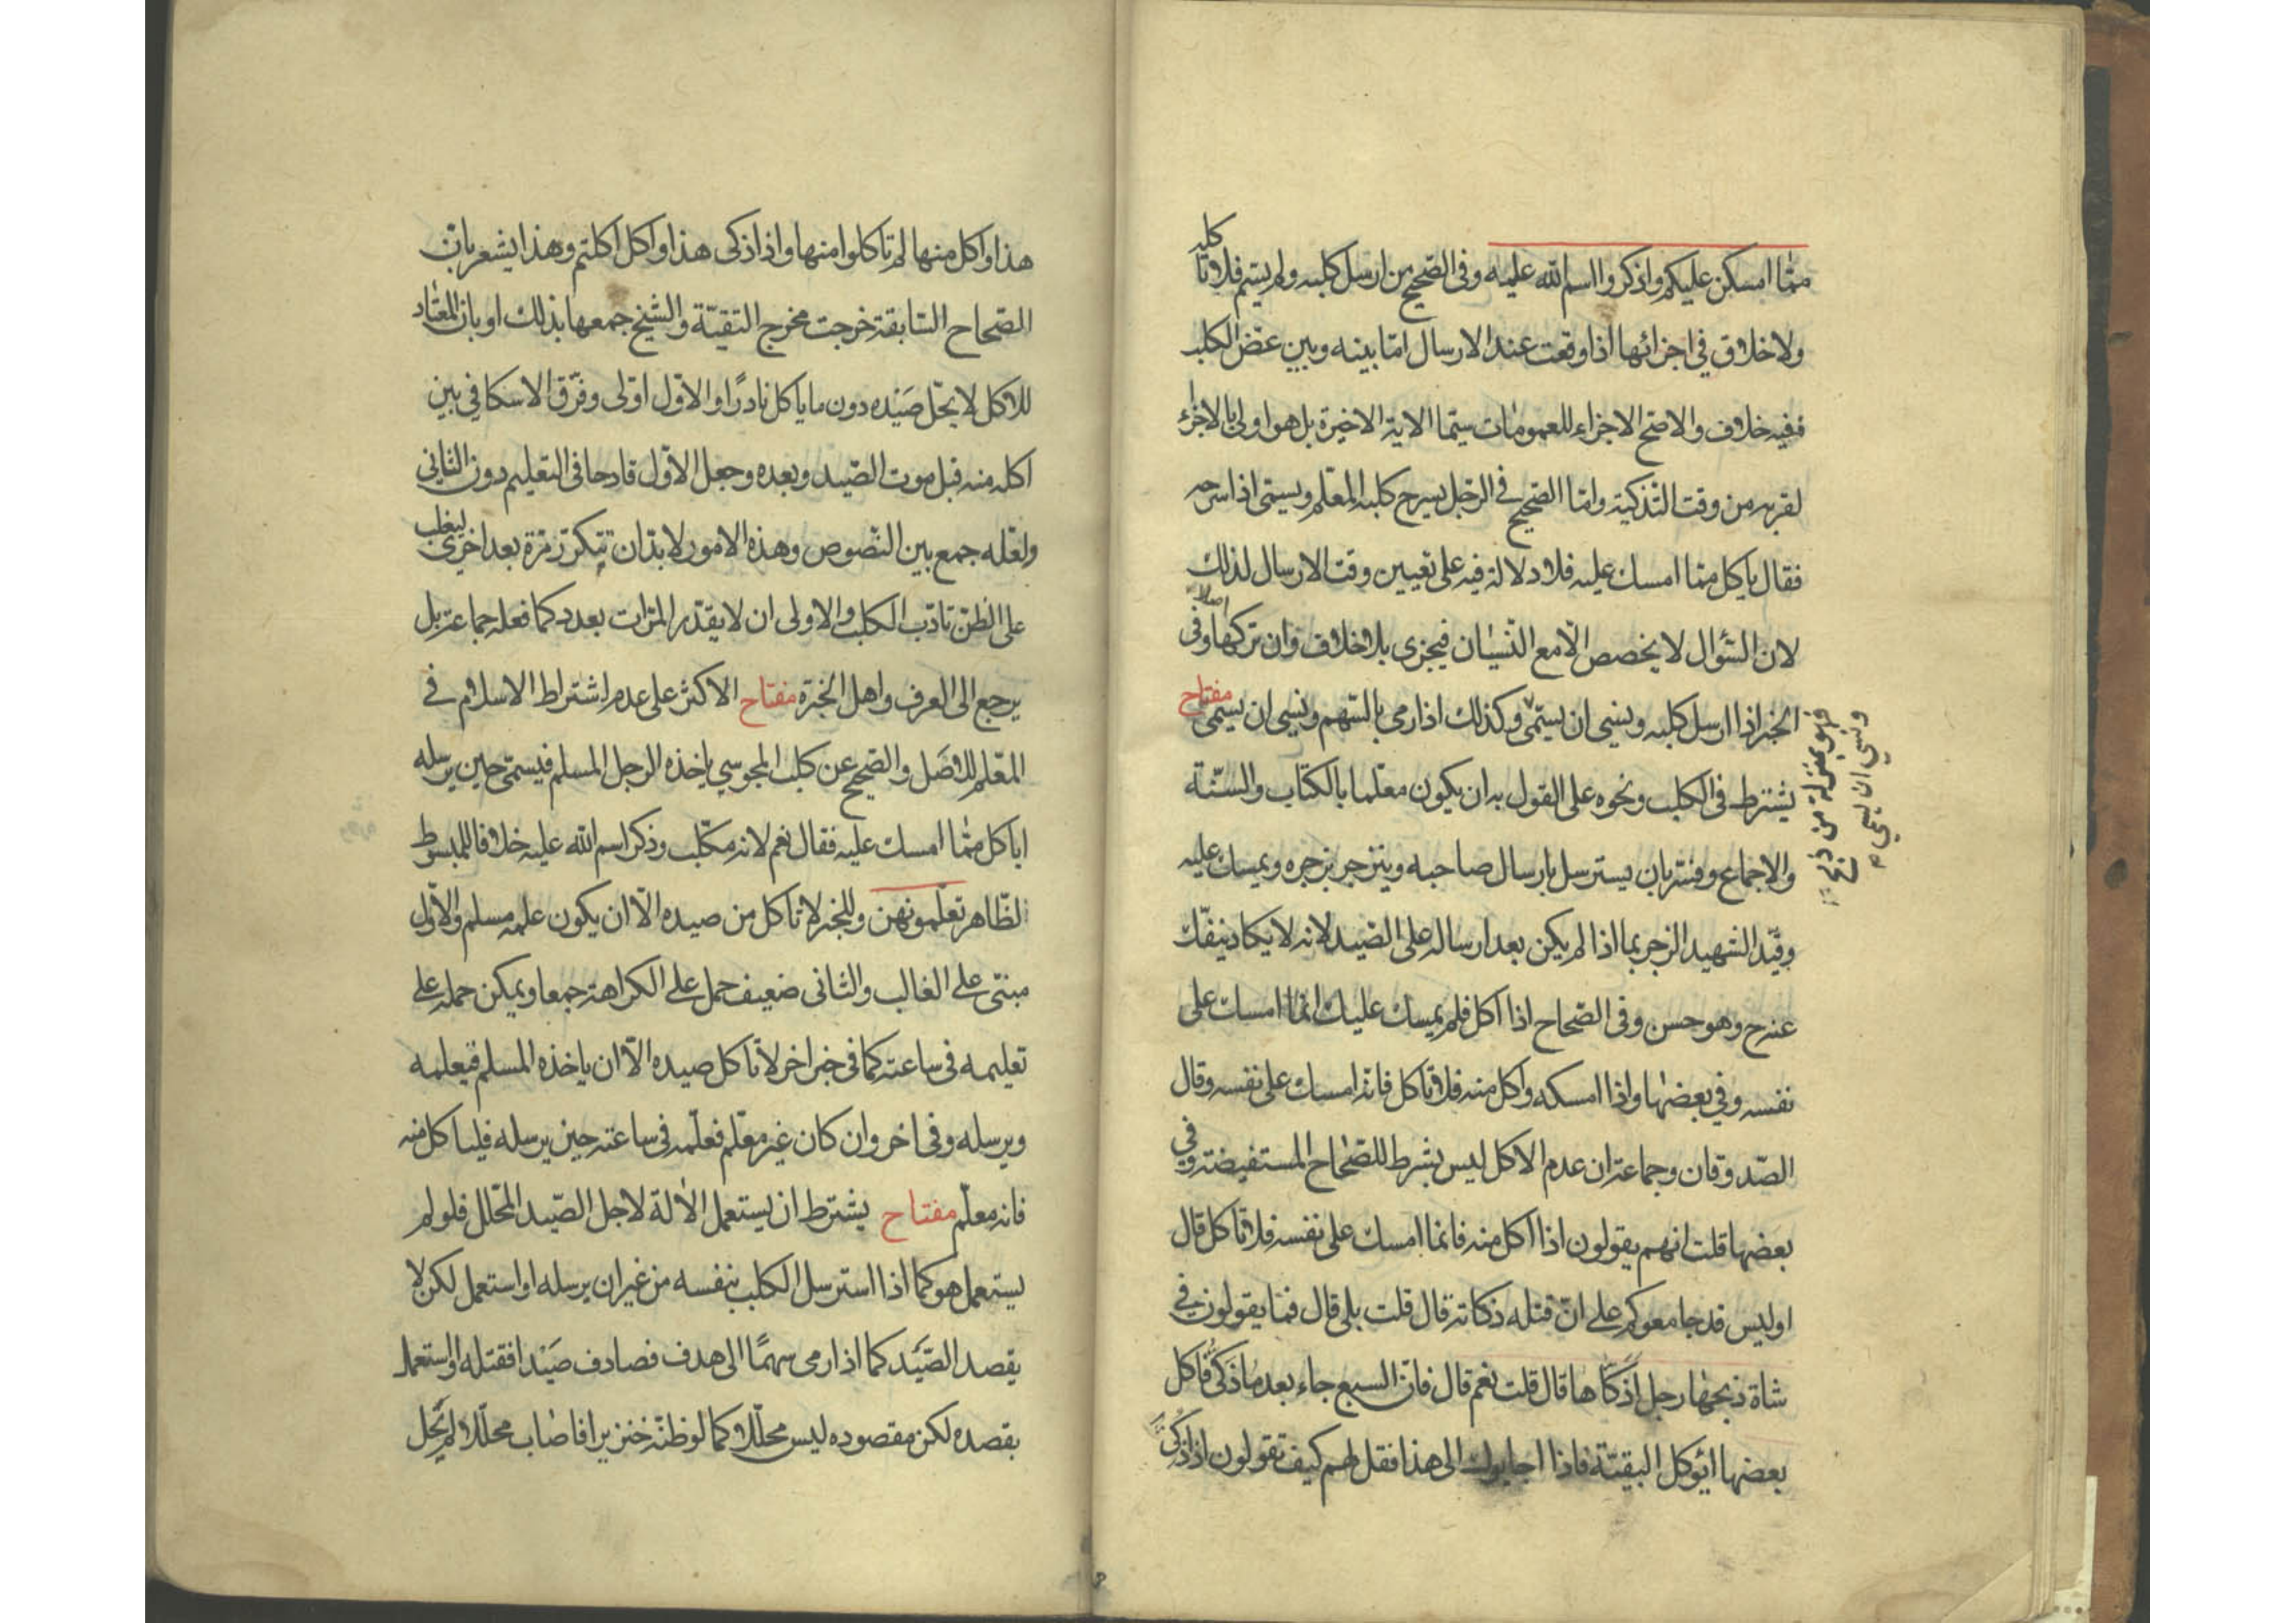 ممّا امسكن عليكم واذكروا اسم الله عليه وفى الصّحيح من ارسل كلبه ولم يسمّ فلا تا كله
ولا خلاف فى اجزائها اذا وقعت عند الارسال امّا بينه وبين عضّ الكلب
ففيه خلاف والاصحّ الاجزاء للعمومات سيّما الاية الاخيرة بل هو اولى بالاجزاء
لقربه من وقت التّذكية وامّا الصّحيح فى الرّجل يسرح كلبه المعلّم ويسمّى اذا سرحه
فقال ياكل ممّا امسك عليه فلا دلالة فيه على تعيين وقت الارسال لذلك
لان السّؤال لا يخصص الّا مع النّسيان فيجزى بلا خلاف وان تركها اصلا وفى
الخبر اذا ارسل كلبه ونسى ان يسمّى وكذلك اذا رمى بالسّهم ونسى ان يسمّى مفتاح
فهو بمنزلة من ذبح
ونسى ان يسمى
يشترط فى الكلب ونحوه على القول به ان يكون معلّما بالكتاب والسّنّة
والاجماع وفسّر بان يسترسل بارسال صاحبه وينزجر بزجره ويمسك عليه
وقيّد الشهيد الزجر بما اذا لم يكن بعد ارساله على الصّيد لانه لا يكاد ينفّك
عنه ح وهو حسن وفى الصّحاح اذا اكل فلم يمسك عليك انّما امسك على
نفسه وفى بعضها واذا امسكه واكل منه فلا تاكل فانّه امسك على نفسه وقال
الصّدوقان وجماعة ان عدم الاكل ليس بشرط للصّحاح المستفيضة وفى
بعضها قلت انهم يقولون اذا اكل منه فانما امسك على نفسه فلا تاكل قال
اوليس قد جامعوكم على انّ قتله ذكاته قال قلت بلى قال فما يقولون فى
شاة ذبحها رجل اذكّاها قال قلت نعم قال فانّ السبع جاء بعد ما ذكّى فاكل
بعضها ايؤكل البقيّة فاذا اجابوك الى هذا فقل لهم كيف تقولون اذا ذكّى
هذا واكل منها لم تاكلوا منها واذا ذكى هذا واكل اكلتم وهذا يشعر بانّ
الصّحاح السّابقة خرجت مخرج التقيّة والشّيخ جمعها بذلك او بان المعتاد
للاكل لا يحلّ صيده دون ما ياكل نادرًا والاوّل اولى وفرّق الاسكافى بين
اكله منه قبل موت الصّيد وبعده وجعل الاوّل قادحا فى التعليم دون الثانى
ولعّله جمع بين النّصوص وهذه الامور لا بدّ ان تتكرّر مرّة بعد اخرى ليغلب
على الظّنّ تادّب الكلب والاولى ان لا يقدّر المرّات بعدد كما فعله جماعة بل
يرجع الى العرف واهل الخبرة مفتاح الاكثر على عدم اشتراط الاسلام فى
المعّلم للاصل والصّحيح عن كلب المجوسي ياخذه الرجل المسلم فيسمّى حين يرسله
اياكل ممّا امسك عليه فقال نعم لانه مكّلب وذكر اسم الله عليه خلافا للمبسوط
لظّاهر تعلّمونهن وللخبر لا تاكل من صيده الّا ان يكون علمه مسلم والاوّل
مبنىّ على الغالب والثانى ضعيف حمل على الكراهة جمعا ويمكن حمله على
تعليمه فى ساعته كما فى خبر اخر لا تاكل صيده الّا ان ياخذه المسلم فيعلمه
ويرسله وفى اخر وان كان غير معلّم فعلّمه فى ساعته حين يرسله فلياكل منه
فانه معلّم مفتاح يشترط ان يستعمل الالة لاجل الصّيد المحّلل فلو لم
يستعمل هو كما اذا استرسل الكلب بنفسه من غير ان يرسله او استعمل لكن لا
يقصد الصّيد كما اذا رمى سهمًا الى هدف فصادف صيدا فقتله او استعمل
بقصده لكن مقصوده ليس محلّلا كما لو ظنّه خنزيرا فاصاب محلّلا لم يحل